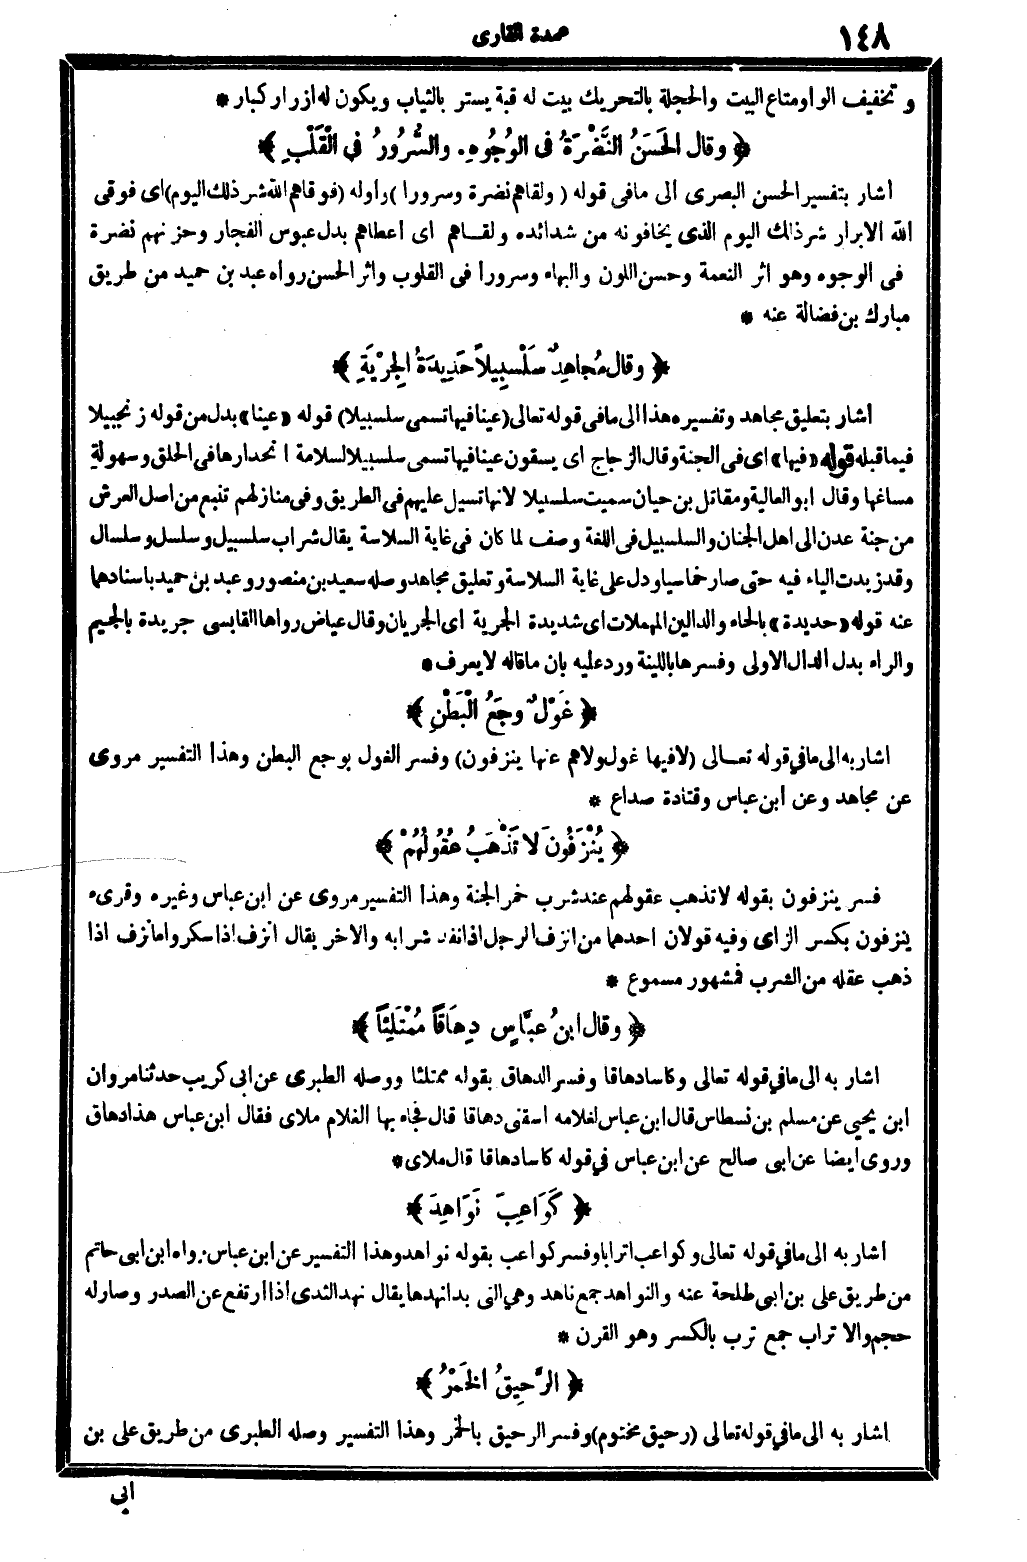 ١٤٨
عمدة القارى
وتخفيف الواو ومتاع البيت والحجلة بالتحريك بيت له قبة يستر بالثياب ويكون له ازرار كبار *
﴿ وقال الحَسَنُ النَّضْرَةُ فى الوُجُوهِ. والسُّرُورُ فى الْقَلْبِ ﴾
أشار بتفسير الحسن البصرى الى مافى قوله ( ولقاهم نضرة وسرورا ) وأوله (فوقاهم الله شر ذلك اليوم) اى فوقى
الله الابرار شر ذلك اليوم الذى يخافونه من شدائده ولقـاهم اى أعطاهم بدل عبوس الفجار وحزنهم نضرة
فى الوجوه وهو اثر النعمة وحسن اللون والبهاء وسرورا فى القلوب واثر الحسن رواه عبد بن حميد من طريق
مبارك بن فضالة عنه *
﴿ وقال مُجاهِدٌ سَلْسبِيلاً حَدِيدَةُ الجِرْيَةِ ﴾
أشار بتعليق مجاهد وتفسيره هذا الى مافى قوله تعالى (عينا فيها تسمى سلسبيلا) قوله «عينا» بدل من قوله زنجبيلا
فيما قبله قوله «فيها» اى فى الجنة وقال الزجاج اى يسقون عينا فيها تسمى سلسبيلا لسلامة انحدارها فى الحلق وسهولة
مساغها وقال ابو العالية ومقاتل بن حيان سميت سلسبيلا لانها تسيل عليهم فى الطريق وفى منازلهم تنبع من اصل العرش
من جنة عدن الى اهل الجنان والسلسبيل فى اللغة وصف لما كان فى غاية السلاسة يقال شراب سلسبيل وسلسل وسلسال
وقد زيدت الياء فيه حتى صار خماسيا ودل على غاية السلاسة وتعليق مجاهد وصله سعيد بن منصور وعبد بن حميد باسنادهما
عنه قوله «حديدة» بالحاء والدالين المهملات اى شديدة الجرية اى الجريان وقال عياض رواها القابسى جريدة بالجيم
والراء بدل الدال الاولى وفسرها باللينة ورد عليه بان ماقاله لا يعرف *
﴿ غَوْلٌ وجَعُ الْبَطْنِ ﴾
اشار به الى مافي قوله تعـالى (لافيها غول ولاهم عنها ينزفون) وفسر الغول بوجع البطن وهذا التفسير مروى
عن مجاهد وعن ابن عباس وقتادة صداع *
﴿ يُنْزَفُونَ لا تَذْهَبُ عُقُولُهُمْ ﴾
فسر ينزفون بقوله لا تذهب عقولهم عند شرب خمر الجنة وهذا التفسير مروى عن ابن عباس وغيره وقرىء
ينزفون بكسر الزاى وفيه قولان احدهما من انزف الرجل اذا نفد شرابه والاخر يقال انزف اذا سكر واما نزف اذا
ذهب عقله من الشرب فمشهور مسموع *
﴿ وقال ابنُ عبَّاسٍ دِهَاقاً مُمْتَلِئاً ﴾
اشار به الى مافي قوله تعالى وكاسا دهاقا وفسر الدهاق بقوله ممتلئا ووصله الطبرى عن ابى كريب حدثنا مروان
ابن يحيى عن مسلم بن نسطاس قال ابن عباس لغلامه اسقنى دهاقا قال فجاء بها الغلام ملاى فقال ابن عباس هذا دهاق
وروى ايضا عن ابى صالح عن ابن عباس في قوله كاسا دهاقا قال ملاى *
﴿ كَوَاعِبَ نَوَاهِدَ ﴾
اشار به الى مافي قوله تعالى وكواعب اترابا وفسر كواعب بقوله نواهد وهذا التفسير عن ابن عباس رواه ابن ابى حاتم
من طريق على بن ابى طلحة عنه والنواهد جمع ناهد وهي التى بدا نهدها يقال نهد الثدى اذا ارتفع عن الصدر وصار له
حجم والاتراب جمع ترب بالكسر وهو القرن *
﴿ الرَّحِيقُ الخَمْرُ ﴾
اشار به الى مافي قوله تعالى (رحيق مختوم) وفسر الرحيق بالخمر وهذا التفسير وصله الطبرى من طريق على بن
ابى